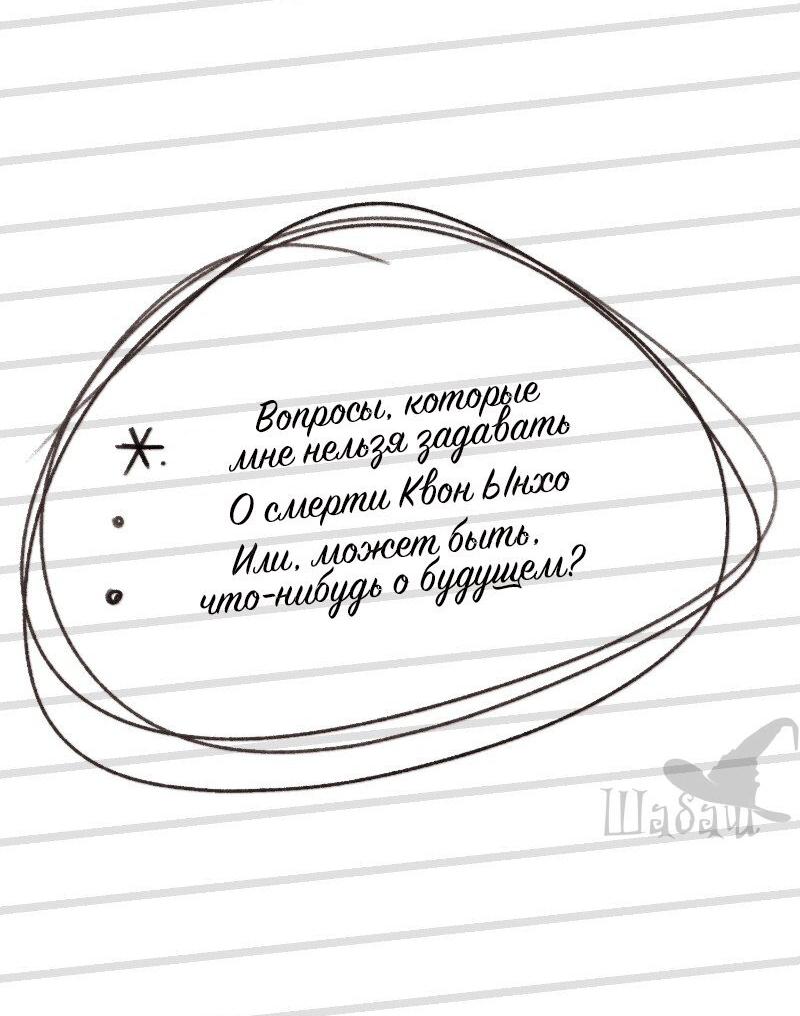 Вопросы, которые
мне нельзя задавать
О смерти Квон Ынхо
Или, может быть,
что-нибудь о будущем?
Шабаш